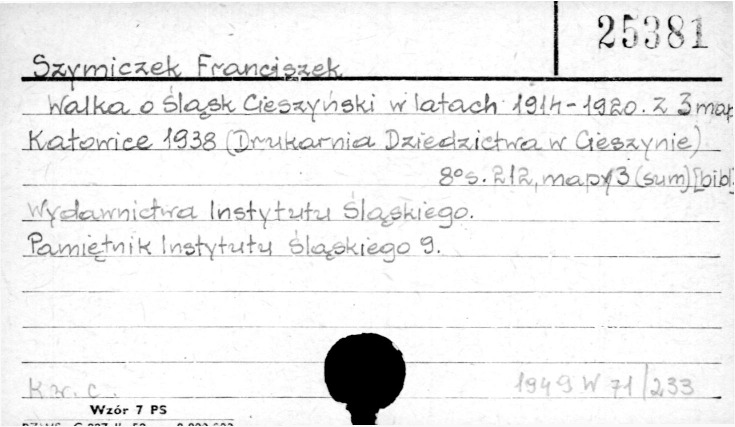 25381
Szymiczek Franciszek
Walka o Śląsk Cieszyński w latach 1914-1920. Z 3 map
Katowice 1938 (Drukarnia Dziedzictwa w Cieszynie)
8° s. 212, mapy 3 (sum) [bibl]
Wydawnictwa Instytutu Śląskiego.
Pamiętnik Instytutu Śląskiego 9.
1949 W 71/233
Wzór 7 PS